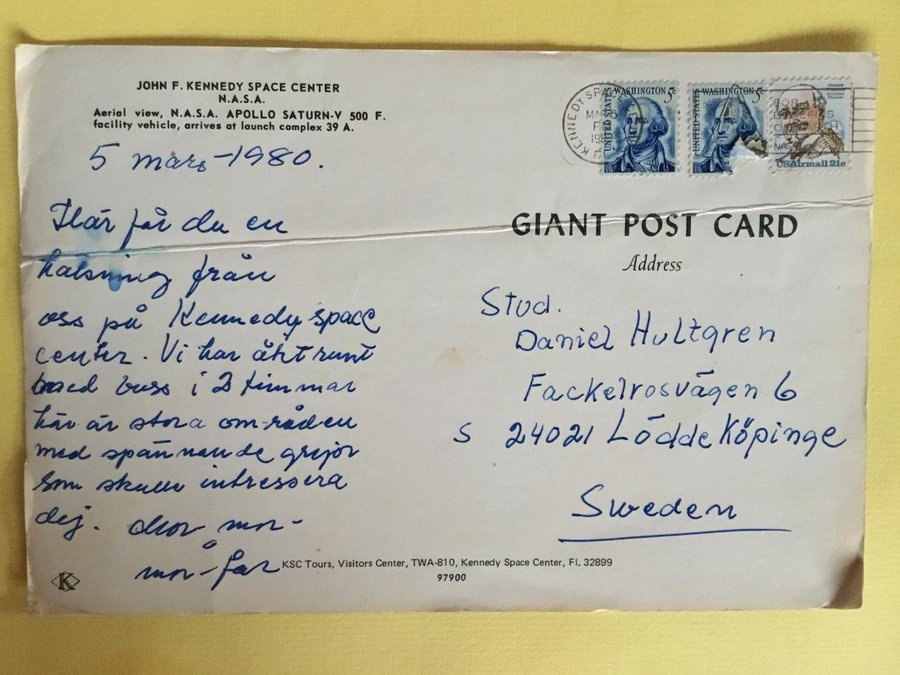 JOHN F. KENNEDY SPACE CENTER
N.A.S.A.
Aerial view, N.A.S.A. APOLLO SATURN-V 500 F.
facility vehicle, arrives at launch complex 39 A.
5 mars-1980.
Här får du en
hälsning från
oss på Kennedy space
center. Vi har åkt runt
med buss i 2 timmar
här är stora områden
med spännande grejor
som skulle intressera
dej.
mor-
mor-far
KENNEDY SPACE
UNITED STATES
WASHINGTON 5c
UNITED STATES
WASHINGTON 5c
USAirmail 21c
GIANT POST CARD
Address
Stud.
Daniel Hultgren
Fackelrosvägen 6
S 24021 LöddeKöpinge
Sweden
KSC Tours, Visitors Center, TWA-810, Kennedy Space Center, Fl. 32899
97900
K